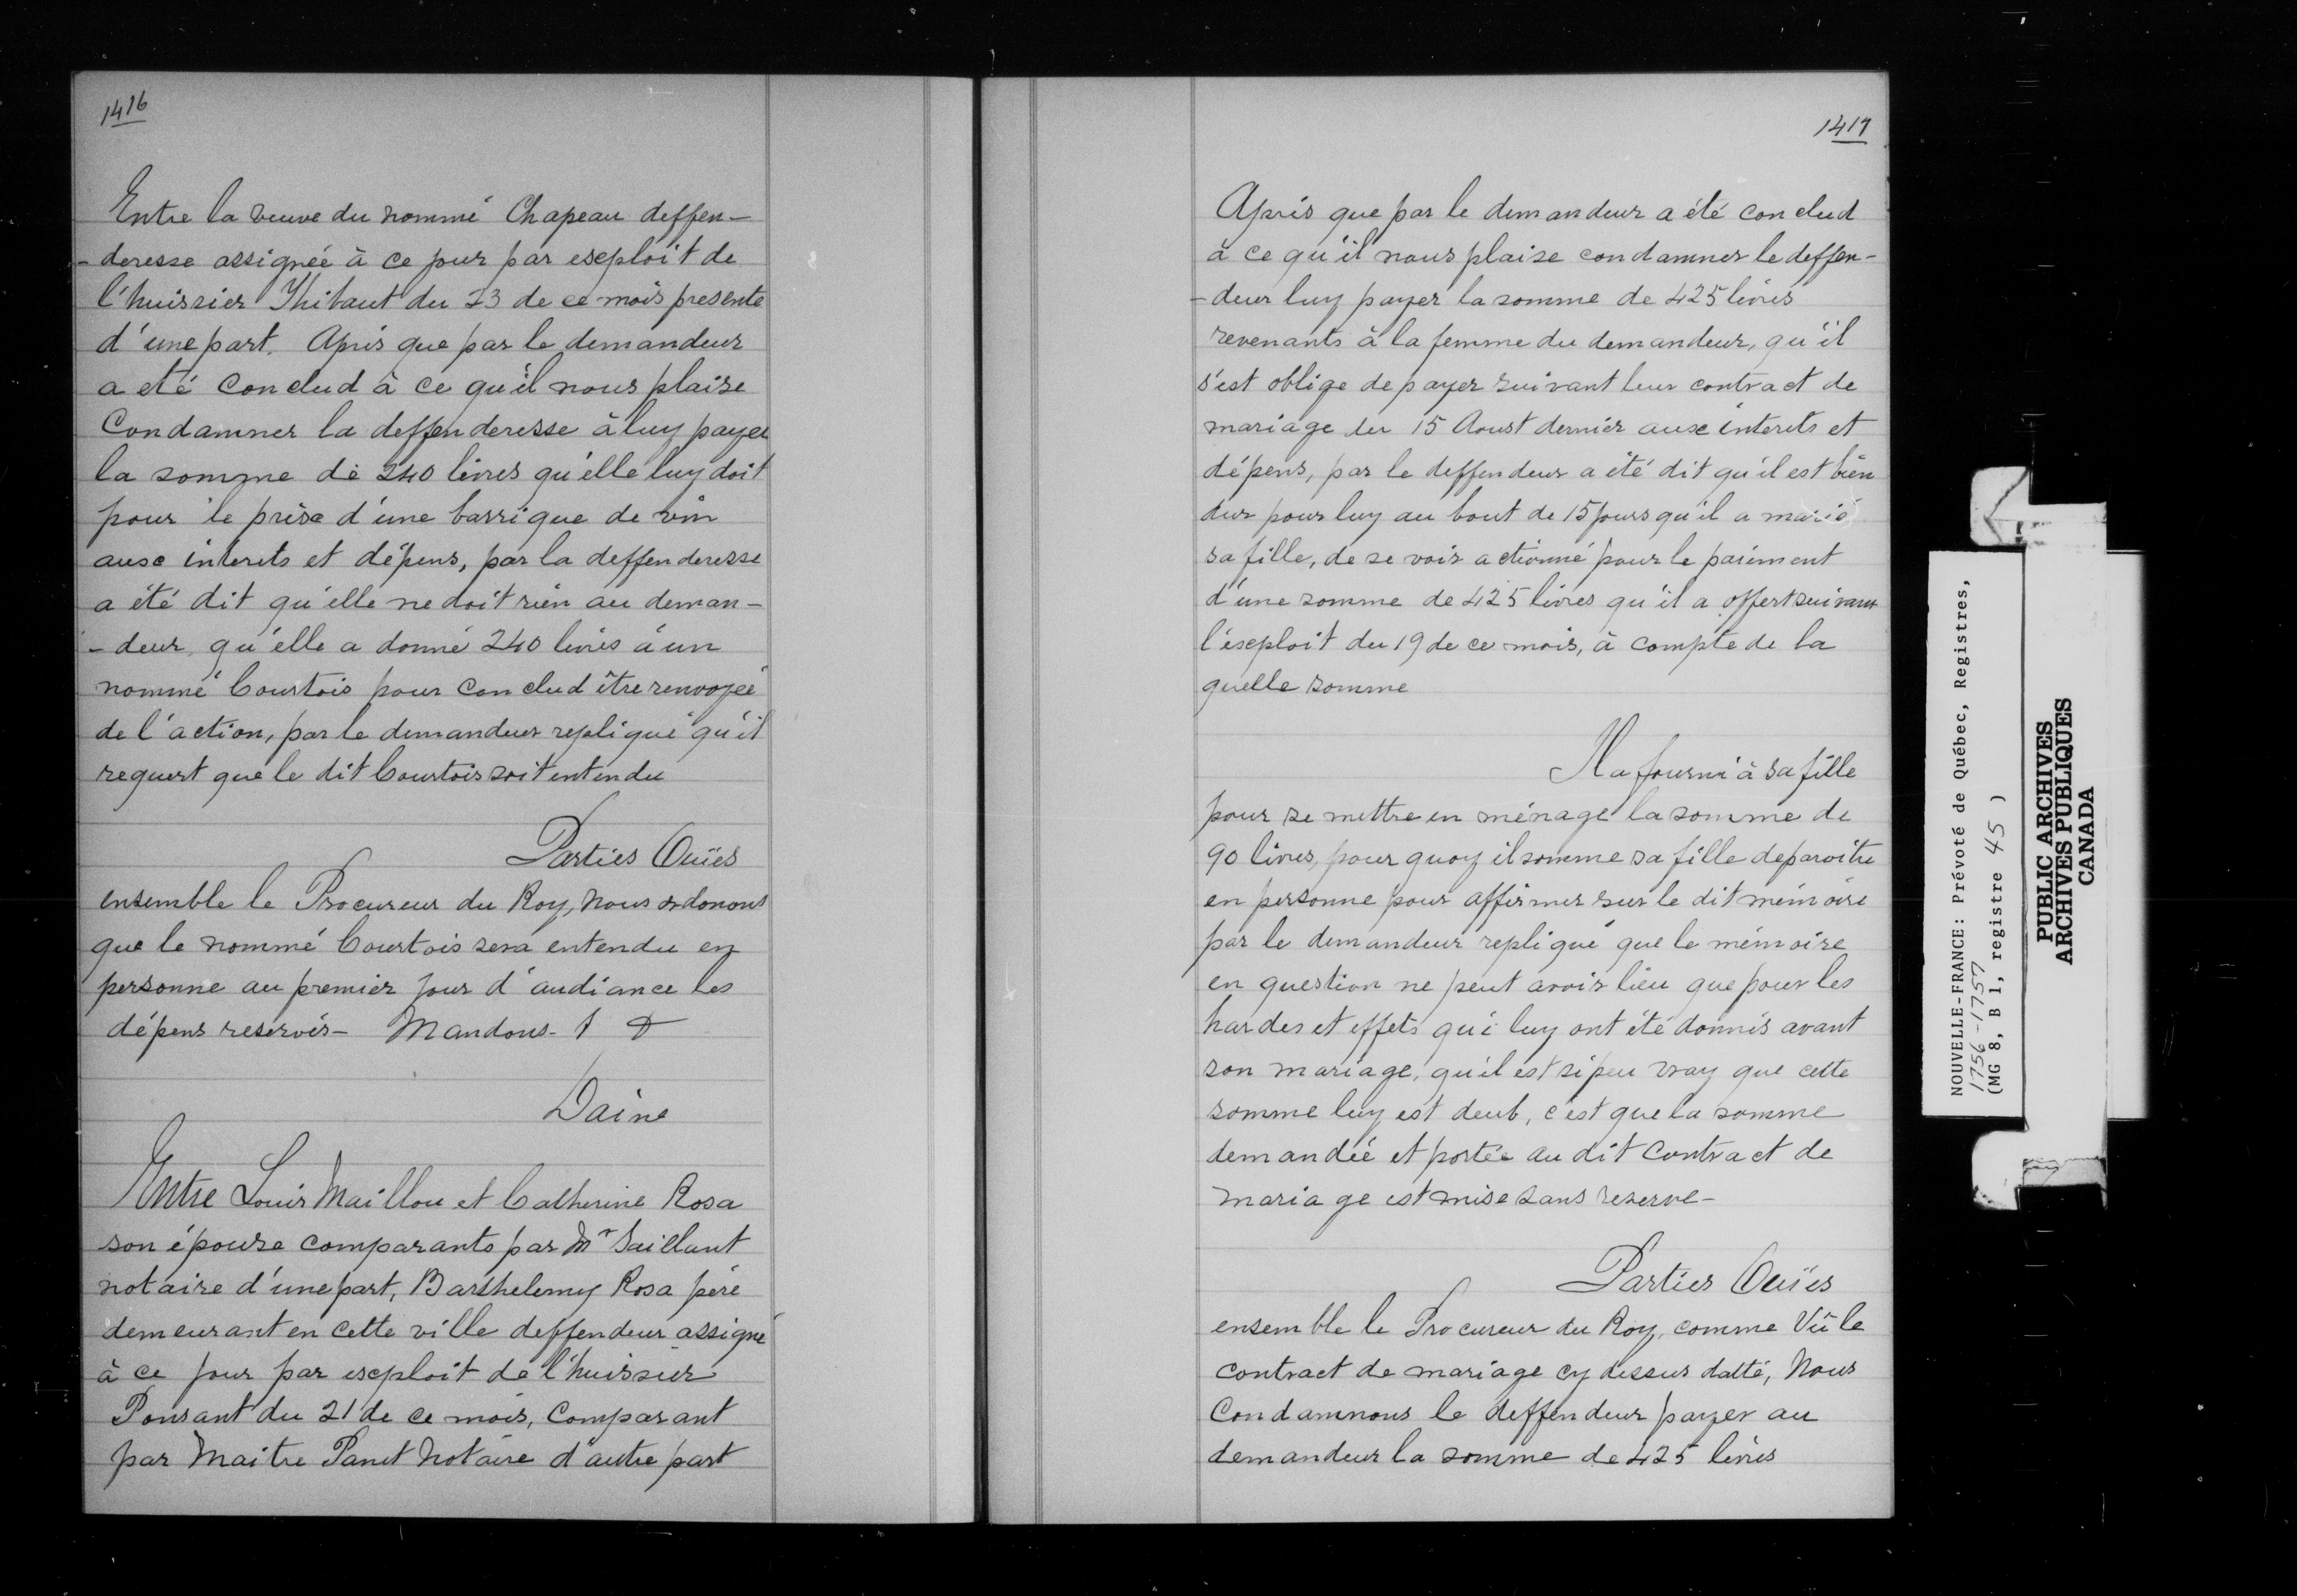 1416
Entre la veuve du nommé Chapeau deffen-
-deresse assignée à ce jour par exploit de
l'huissier Thibaut du 23 de ce mois presente
d'une part. Aprés que par le demandeur
a eté conclud à ce qu'il nous plaise
Condamner la deffenderesse à luy payer
la somme de 240 livres qu'elle luy doit
pour le prix d'une barrique de vin
aux interets et dépens, par la deffenderesse
a été dit qu'elle ne doit rien au deman-
-deur, qu'elle a donné 240 livres à un
nommé Courtois pour conclud être renvoyée
de l'action, par le demandeur repliqué qu'il
requert que le dit Courtois soit entendu
Parties Ouïes
ensemble le Procureur du Roy, nous ordonons
que le nommé Courtois sera entendu en
personne au premier jour d'audiance les
dépens reservés - Mandons
Daine
Entre Louis Maillou et Catherine Rosa
son épouse comparants par Mr Saillant
notaire d'une part, Barthelemy Rosa pére
demeurant en cette ville deffendeur assigné
à ce jour par exploit de l'huissier
Ponsant du 21 de ce mois, Comparant
par Maitre Panet Notaire d'autre part
1417
Aprés que par le demandeur a été conclud
à ce qu'il nous plaise condamner le deffen-
-deur luy payer la somme de 425 livres
revenants à la femme du demandeur, qu'il
s'est oblige de payer suivant leur contract de
mariage du 15 Aoust dernier aux interets et
dépens, par le deffendeur a été dit qu'il est bien
dur pour luy au bout de 15 jours qu'il a marié
sa fille, de se voir actionné pour le paiement
d'une somme de 425 livres qu'il a offert suivant
l'exploit du 19 de ce mois, à compte de la
quelle somme
Il a fourni à sa fille
pour se mettre en ménage la somme de
90 livres, pour quoy il somme sa fille deparoitre
en personne pour affirmer sur le dit mémoire
par le demandeur repliqué que le mémoire
en question ne peut avoir lieu que pour les
hardes et effets qui luy ont été donnés avant
son mariage, qu'il est si peu vray que cette
somme luy est deub, c'est que la somme
demandée et portée au dit contract de
mariage est mise sans reserve -
Parties Ouïes
ensemble le Procureur du Roy, comme Vû le
contract de mariage cy dessus datté, Nous
Condamnons le deffendeur payer au
demandeur la somme de 425 livres
NOUVELLE-FRANCE: Prévoté de Québec, Registres,
1756-1757
(MG 8, B 1, registre 45 )
PUBLIC ARCHIVES
ARCHIVES PUBLIQUES
CANADA